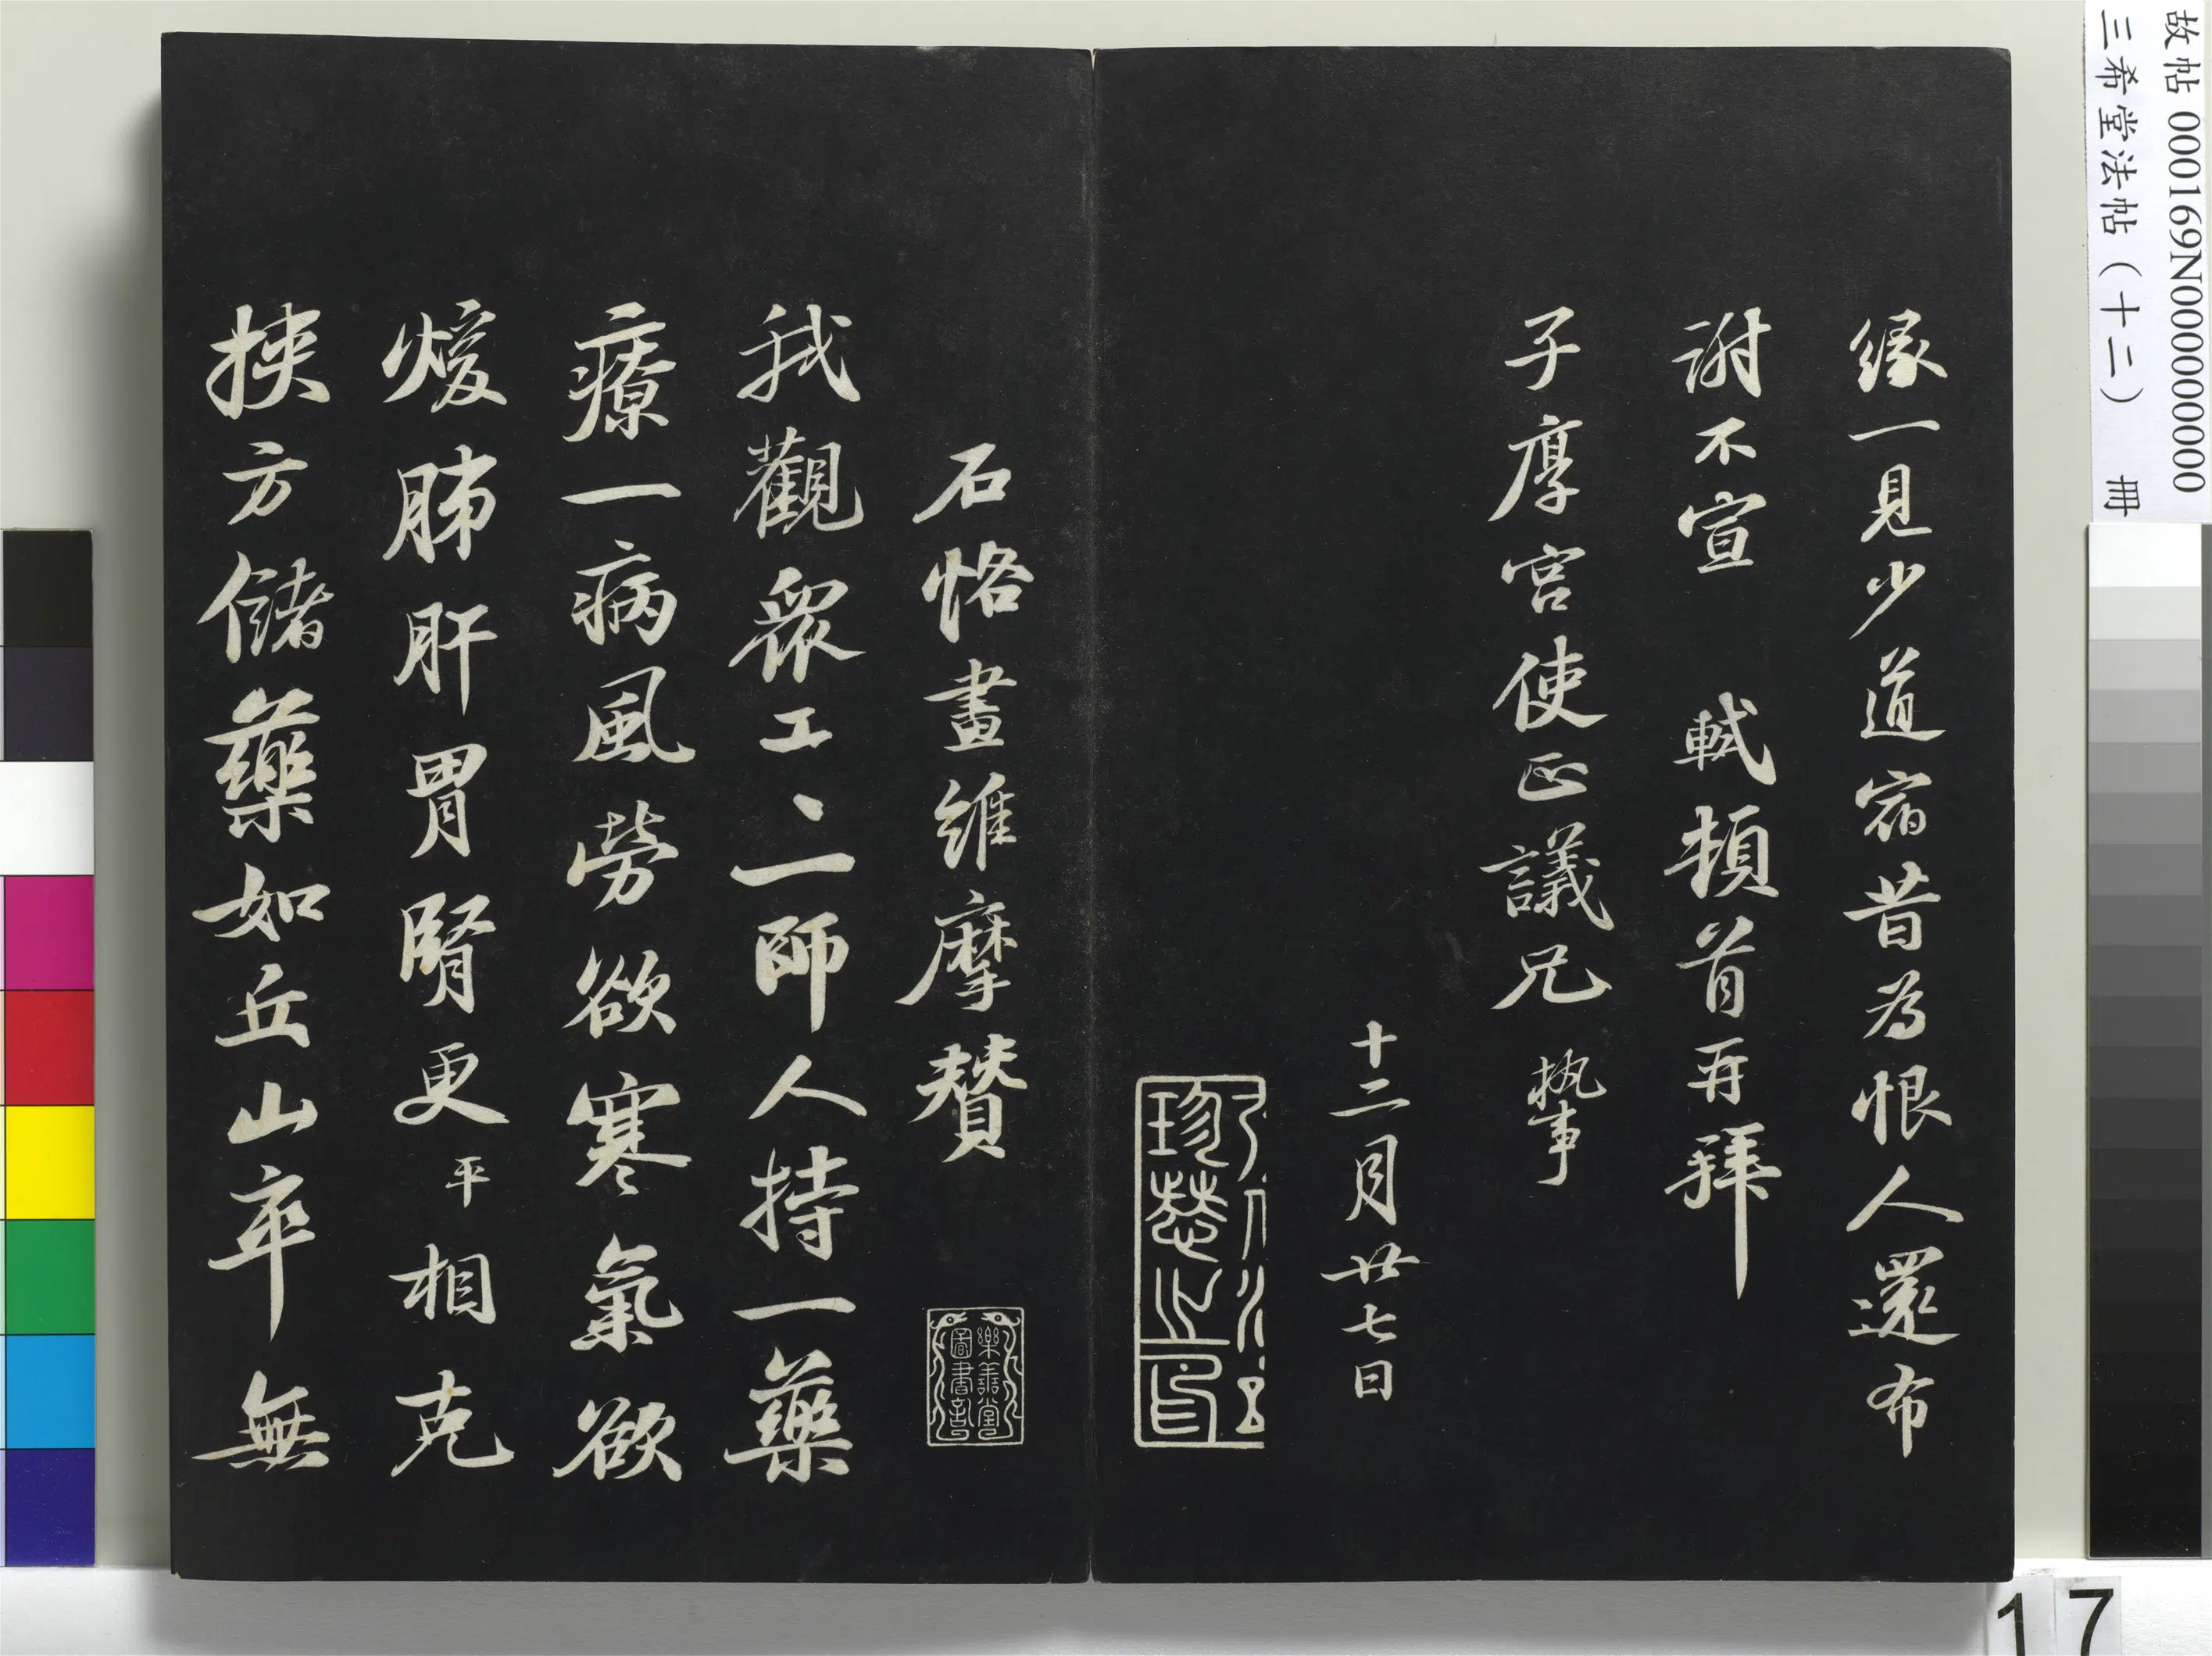 故帖 000169N000000000
三希堂法帖（十二） 冊
緣一見少道宿昔為恨人還布
謝不宣 軾頓首再拜
子厚宮使正議兄 執事
十二月廿七日
石恪畫維摩贊
樂善堂圖書記
我觀眾工工一師人持一藥
療一病風勞欲寒氣欲
煖肺肝胃腎更平相克
挾方儲藥如丘山卒無
17